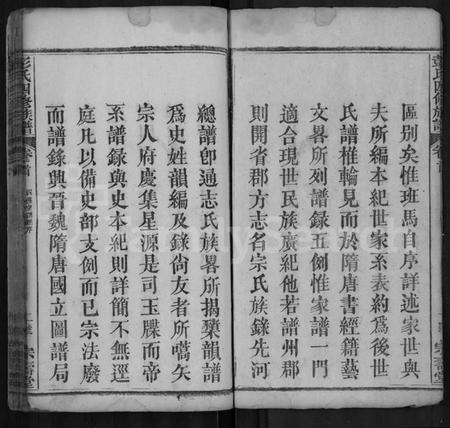 彭氏四修族譜
卷首
區別矣惟班馬自序詳述家世與
夫所編本紀世家系表約爲後世
氏譜椎輪見而於隋唐書經籍藝
文畧所列譜錄五例惟家譜一門
適合現世民族廣紀他若譜州郡
則開省郡方志名宗氏族錄先河
總譜卽通志氏族畧所揭櫫韻譜
爲史姓韻編及錄尙友者所蒿矢
宗人府慶集星源是司玉牒而帝
系譜錄與史本紀則詳簡不無逕
庭凡以備史部支例而已宗法廢
而譜錄興晉魏隋唐國立圖譜局
彭氏四修族譜
卷首